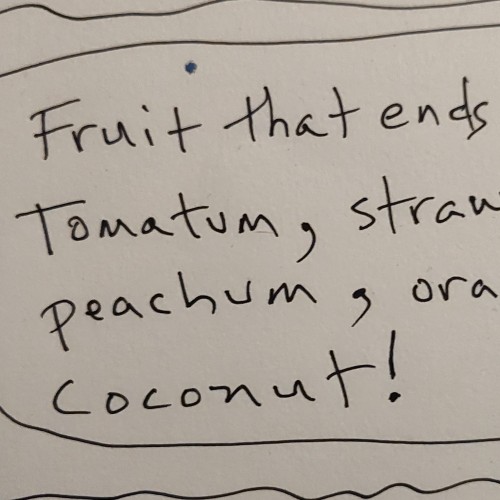 Fruit that ends
Tomatum, straw
peachum, ora
Coconut!